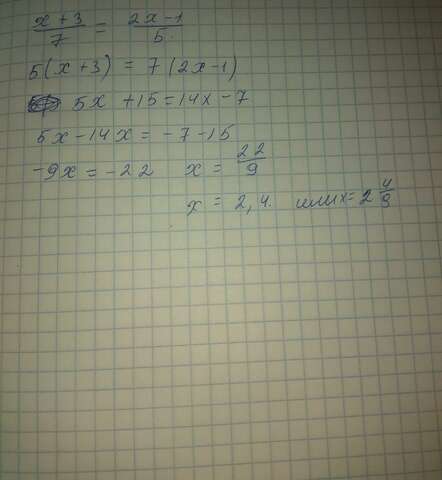 x+3/7 = 2x-1/5.
5(x+3) = 7(2x-1)
5x +15=14x-7
5x-14x=-7-15
-9x=-22 x=22/9
x = 2,4. или x=2 4/9